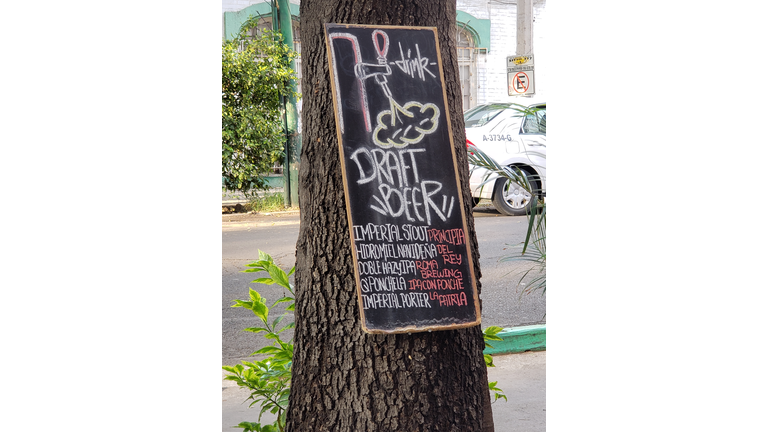 -drink-
DRAFT
BEER
IMPERIAL STOUT PRINCIPIA
HIDROMIEL NAVIDEÑA DEL REY
DOBLE HAZY IPA ROMA BREWING
SI PONCHELA IPA CON PONCHE
IMPERIAL PORTER LA PATRIA
E
A-3734-G